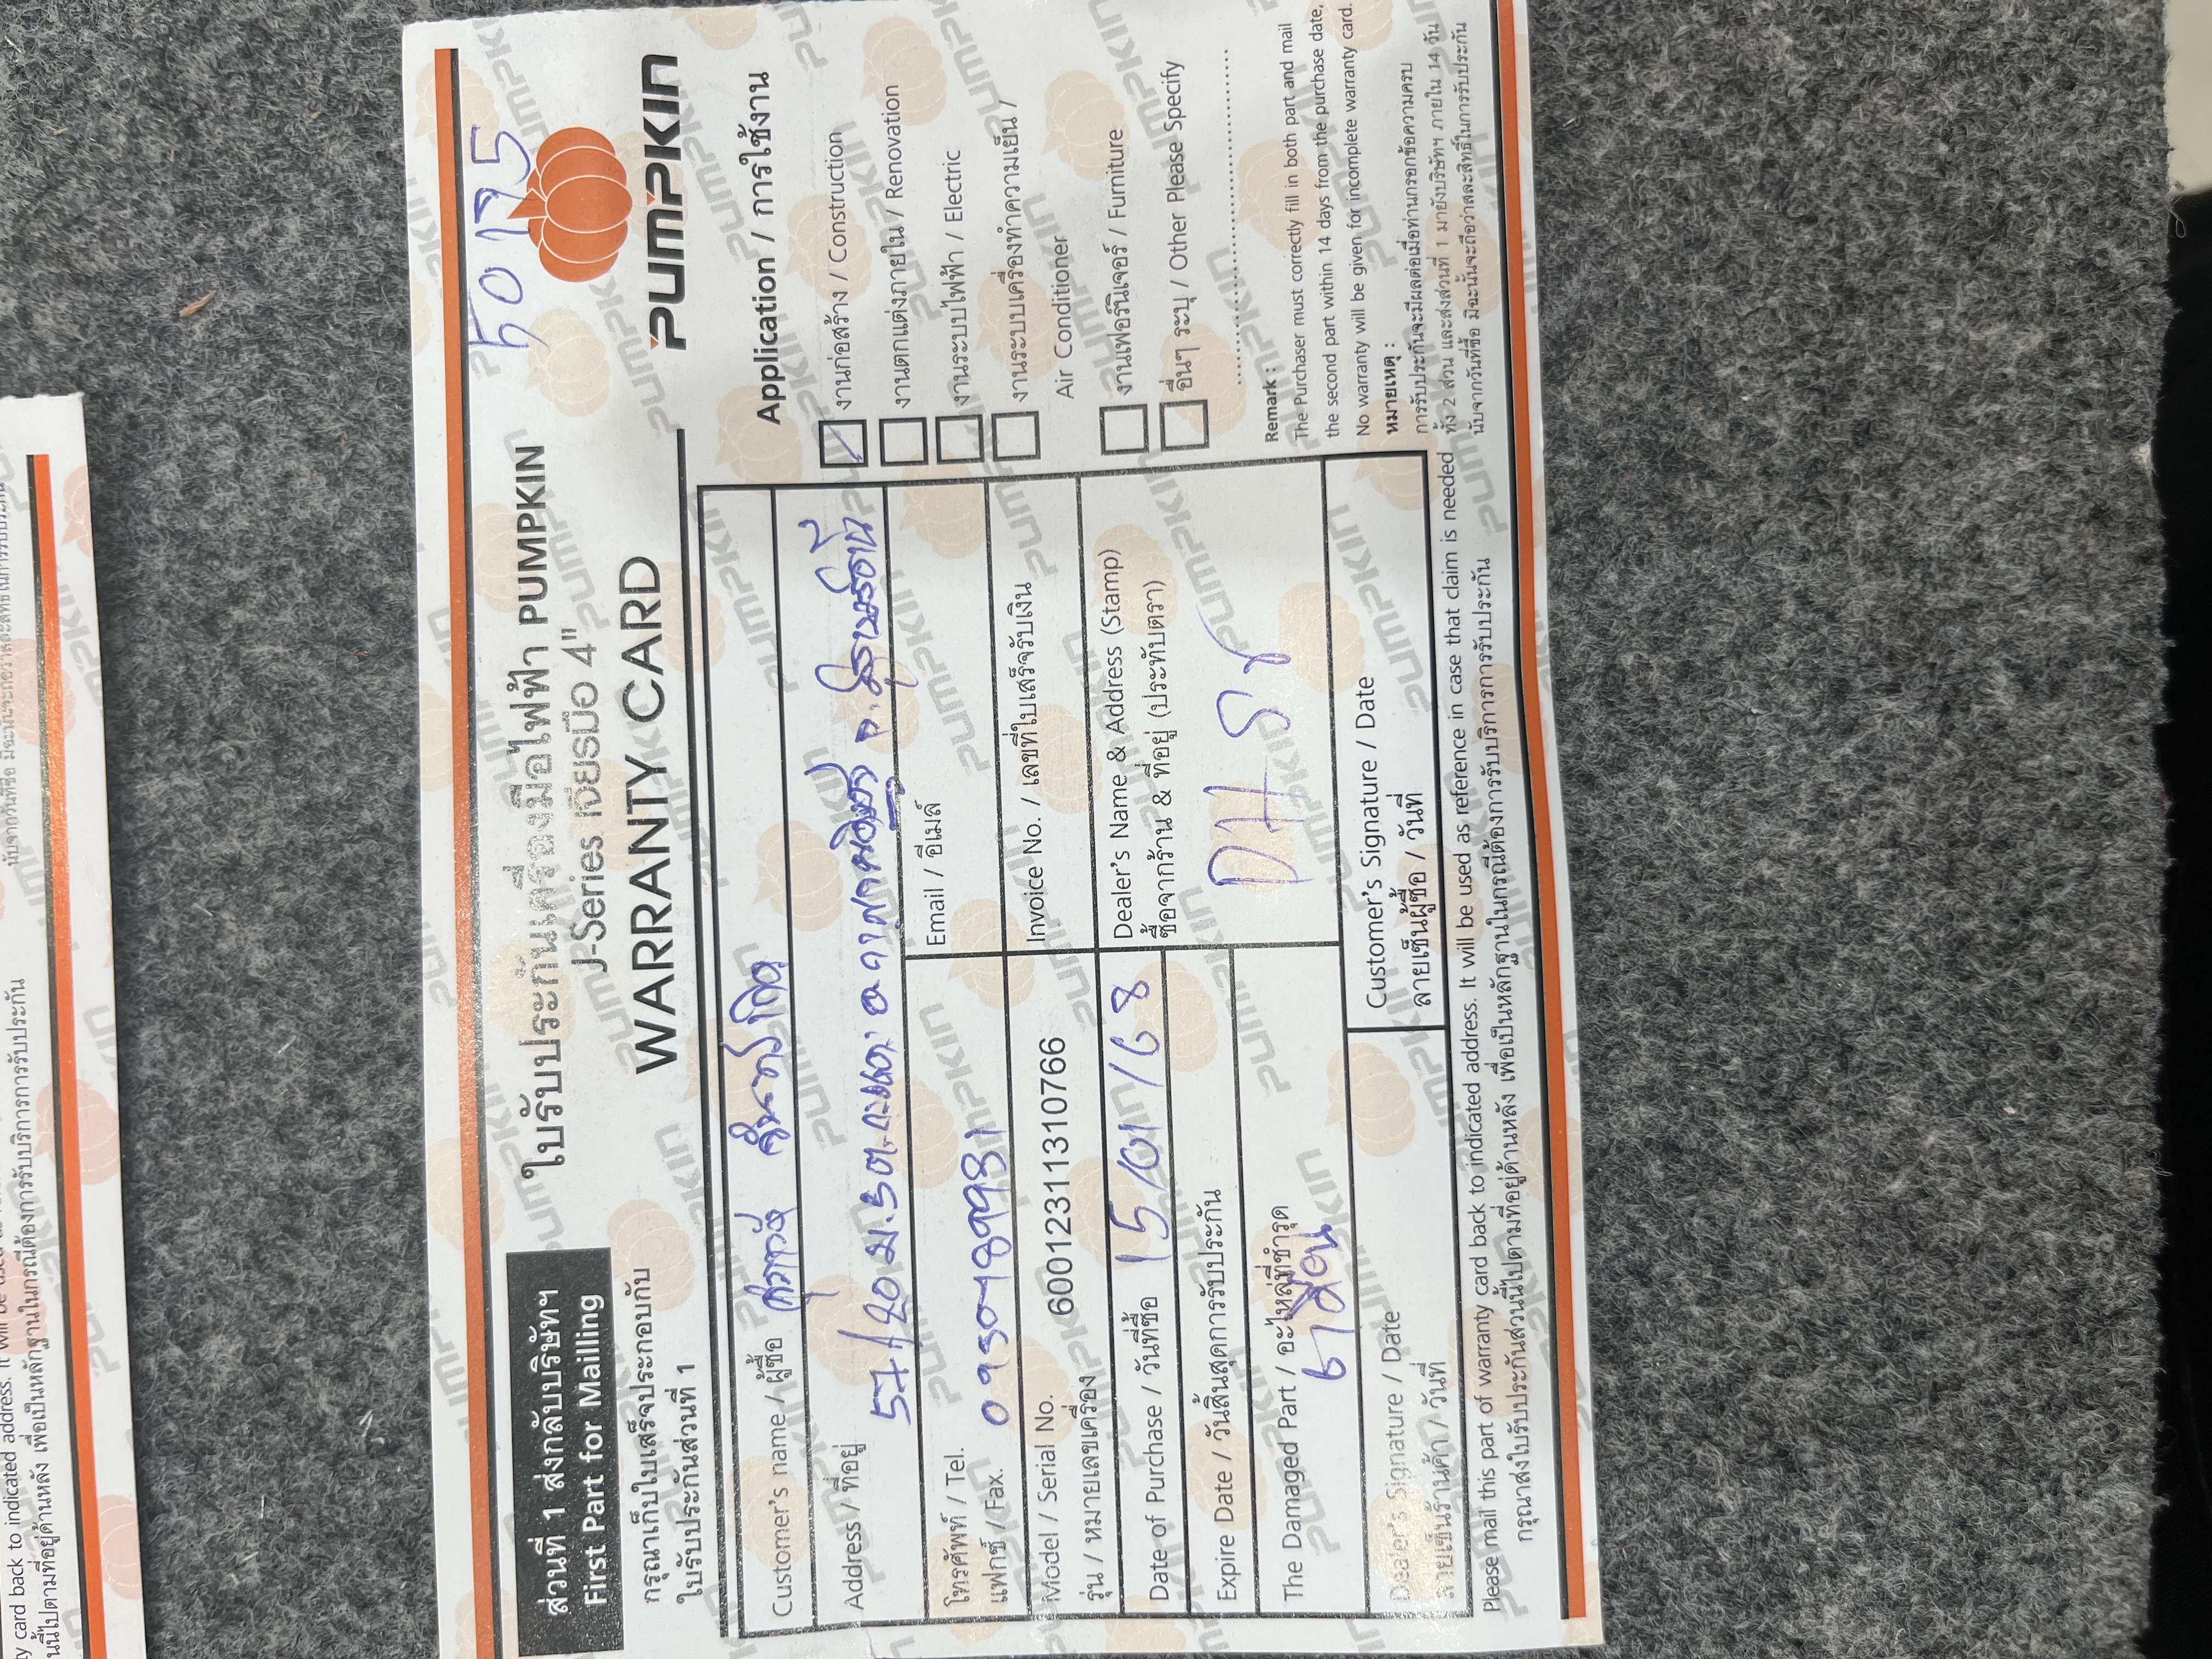 50175
ส่วนที่ 1 ส่งกลับบริษัทฯ
First Part for Mailling
ใบรับประกันเครื่องมือไฟฟ้า PUMPKIN
J-Series เจียรมือ 4"
WARRANTY CARD
PUMPKIN
กรุณาเก็บใบเสร็จประกอบกับ
ใบรับประกันส่วนที่ 1
Customer's name / ผู้ซื้อ
Address / ที่อยู่ 57/20 ม.5 ต.
โทรศัพท์ / Tel. 0950489981
แฟกซ์ / Fax.
Email / อีเมล์
Model / Serial No. 6001231131310766
รุ่น / หมายเลขเครื่อง
Invoice No. / เลขที่ใบเสร็จรับเงิน
Date of Purchase / วันที่ซื้อ 15/01/68
Expire Date / วันสิ้นสุดการรับประกัน
Dealer's Name & Address (Stamp)
ซื้อจากร้าน & ที่อยู่ (ประทับตรา)
DH
The Damaged Part / อะไหล่ที่ชำรุด
6 เดือน
Dealer's Signature / Date
ลายเซ็นร้านค้า / วันที่
Customer's Signature / Date
ลายเซ็นผู้ซื้อ / วันที่
Application / การใช้งาน
งานก่อสร้าง / Construction
งานตกแต่งภายใน / Renovation
งานระบบไฟฟ้า / Electric
งานระบบเครื่องทำความเย็น /
Air Conditioner
งานเฟอร์นิเจอร์ / Furniture
อื่นๆ ระบุ / Other Please Specify
Remark :
The Purchaser must correctly fill in both part and mail
the second part within 14 days from the purchase date,
No warranty will be given for incomplete warranty card.
หมายเหตุ :
การรับประกันจะมีผลต่อเมื่อท่านกรอกข้อความครบ
ทั้ง 2 ส่วน และส่งส่วนที่ 1 มายังบริษัทฯ ภายใน 14 วัน
นับจากวันที่ซื้อ มิฉะนั้นจะถือว่าสละสิทธิ์ในการรับประกัน
Please mail this part of warranty card back to indicated address. It will be used as reference in case that claim is needed
กรุณาส่งใบรับประกันส่วนนี้ไปตามที่อยู่ด้านหลัง เพื่อเป็นหลักฐานในกรณีต้องการรับบริการการรับประกัน